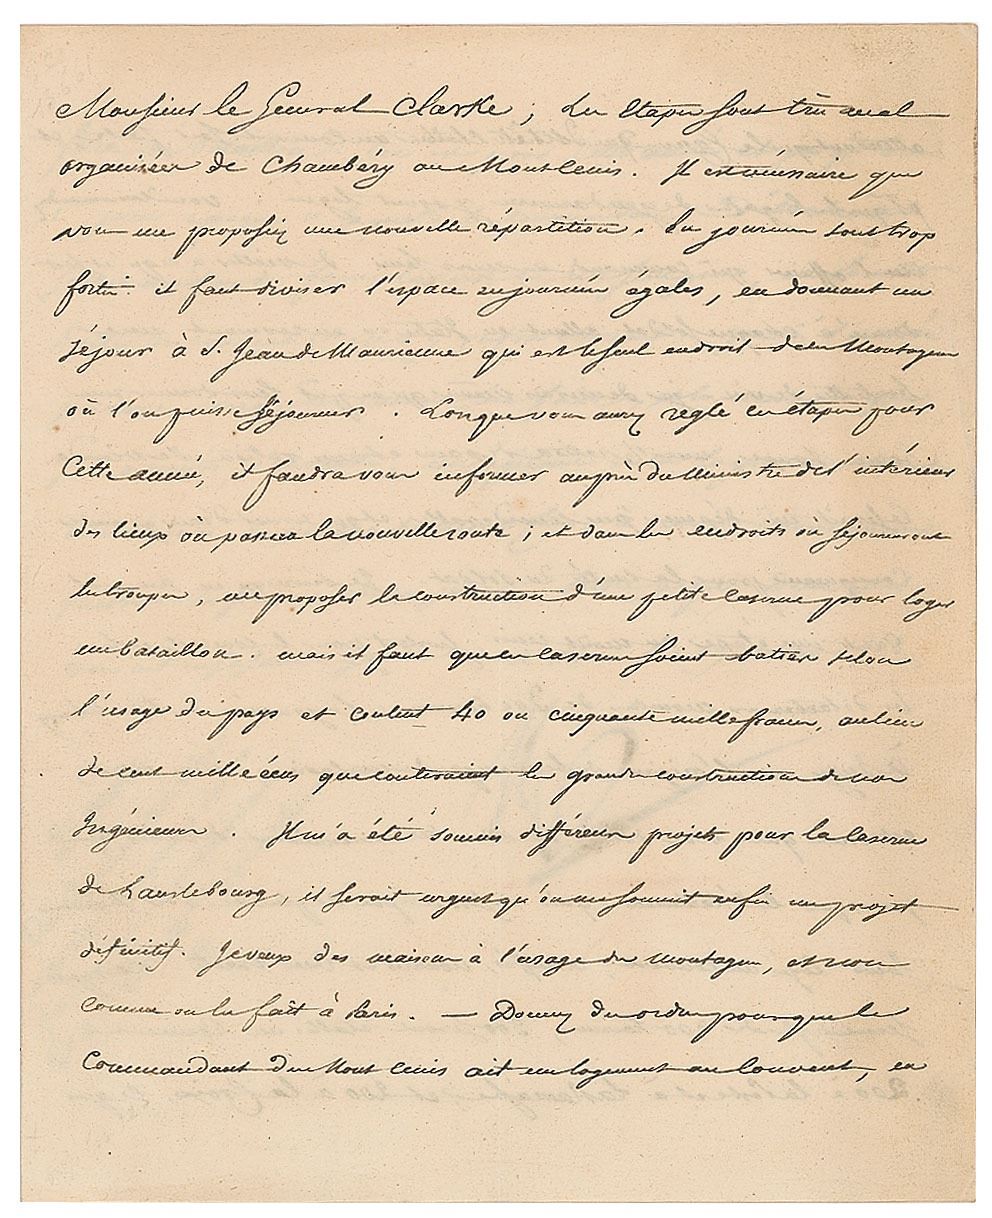 Monsieur le General Clarke ; Les etapes sont très mal
organisées de Chambéry au Montcenis. Il est nécessaire que
vous me proposiez une nouvelle répartition. Les journées sont trop
fortes. il faut diviser l'espace en journées egales, en donnant un
séjour à S. Jean de Maurienne qui est le seul endroit de ces Montagnes
où l'on puisse séjourner. Lorsque vous aurez reglé ces étapes pour
Cette année, il faudra vous informer auprès du Ministre de l'intérieur
des lieux où passera la nouvelle route ; et dans les endroits où séjourneront
les troupes, me proposer la construction d'une petite Caserne pour loger
un bataillon. mais il faut que ces casernes soient baties selon
l'usage du pays et coutent 40 ou cinquante mille francs, au lieu
de cent mille écus que couteraient les grandes constructions de nos
Ingénieurs. Il m'a été soumis différens projets pour la Caserne
de Lanslebourg, il serait urgent qu'on me soumit enfin un projet
définitif. Je veux des maisons à l'usage des montagnes, et non
comme on les fait à Paris. — Donnez des ordres pour que le
Commandant du Mont Cenis ait un logement au Couvent, en